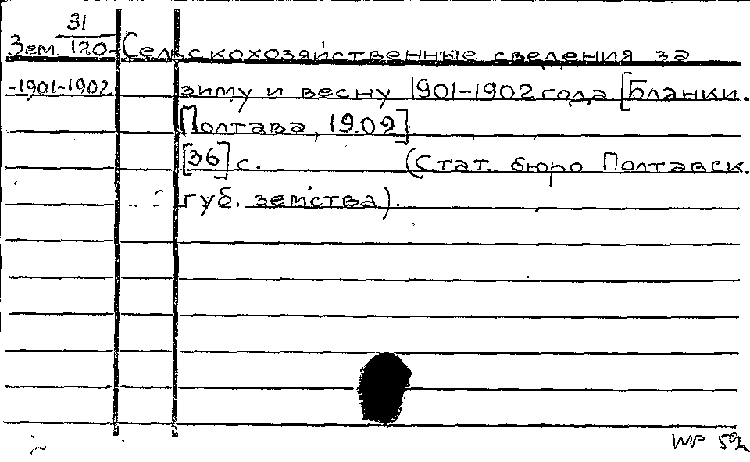 31
Зем. 120- Сельскохозяйственные сведения за
-1901-1902 зиму и весну 1901-1902 года [Бланки.
Полтава, 1902]
[36] с. (Стат. бюро Полтавск.
губ. земства).